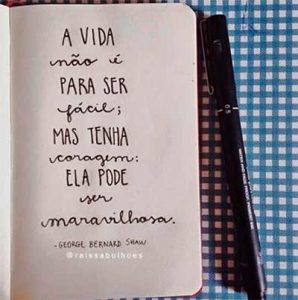 A VIDA
não é
PARA SER
fácil;
MAS TENHA
coragem:
ELA PODE
ser
maravilhosa.
-GEORGE BERNARD SHAW
@raissabulhoes
0.5